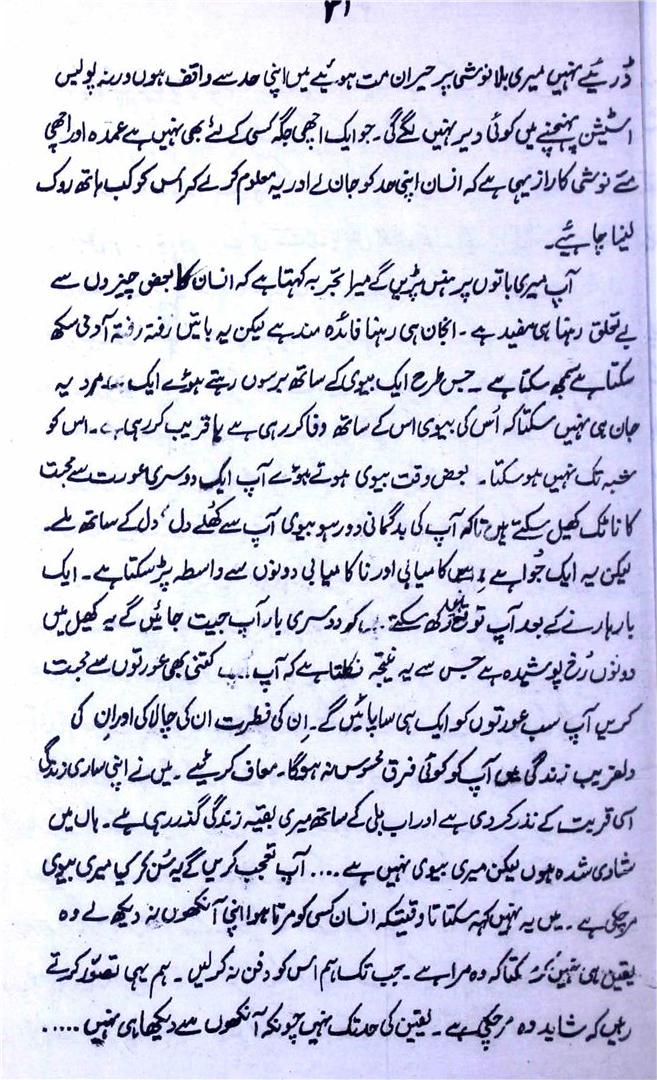 ۳۱
ڈریئے نہیں میری بلا نوشی پر حیران مت ہوئیے میں اپنی حد سے واقف ہوں ورنہ پولیس
اسٹیشن پہنچنے میں کوئی دیر نہیں لگے گی۔ جو ایک اچھی جگہ کسی کے لئے بھی نہیں ہے عمدہ اور اچھی
مئے نوشی کا راز یہی ہے کہ انسان اپنی حد کو جان لے اور یہ معلوم کرلے کہ اس کو کب ہاتھ روک
لینا چاہئیے۔
آپ میری باتوں پر ہنس پڑیں گے میرا تجربہ کہتا ہے کہ انسان کا بعض چیزوں سے
بے تعلق رہنا ہی مفید ہے۔ انجان ہی رہنا فائدہ مند ہے لیکن یہ باتیں رفتہ رفتہ آدمی سکھ
سکتا ہے سمجھ سکتا ہے۔ جس طرح ایک بیوی کے ساتھ برسوں رہتے ہوئے ایک مرد یہ
جان ہی نہیں سکتا کہ اُس کی بیوی اس کے ساتھ وفا کر رہی ہے یا فریب کر رہی ہے۔ اس کو
شبہ تک نہیں ہو سکتا۔ بعض وقت بیوی ہوتے ہوئے آپ ایک دوسری عورت سے محبت
کا ناٹک کھیل سکتے ہیں تاکہ آپ کی بدگمانی دور ہو بیوی آپ سے کھُلے دل، دل کے ساتھ ملے۔
لیکن یہ ایک جُوا ہے اس کامیابی اور ناکامیابی دونوں سے واسطہ پڑ سکتا ہے۔ ایک
بار ہارنے کے بعد آپ توقع نہیں رکھ سکتے کہ دوسری بار آپ جیت جائیں گے یہ کھیل میں
دونوں رُخ پوشیدہ ہے جس سے یہ نتیجہ نکلتا ہے کہ آپ کتنی بھی عورتوں سے محبت
کریں آپ سب عورتوں کو ایک ہی سا پائیں گے۔ اِن کی فطرت ان کی چالاکی اور اِن کی
دلفریب زندگی میں آپ کو کوئی فرق محسوس نہ ہوگا۔ معاف کرئیے۔ میں نے اپنی ساری زندگی
اسی قربت کے نذر کر دی ہے اور اب بلی کے ساتھ میری بقیہ زندگی گذر رہی ہے۔ ہاں میں
شادی شدہ ہوں لیکن میری بیوی نہیں ہے .... آپ تعجب کریں گے یہ سُن کر کیا میری بیوی
مر چکی ہے۔ میں یہ نہیں کہہ سکتا تا وقتیکہ انسان کسی کو مرتا ہوا اپنی آنکھوں نہ دیکھ لے وہ
یقین ہی نہیں کر سکتا کہ وہ مرا ہے۔ جب تک ہم اس کو دفن نہ کرلیں۔ ہم یہی تصوّر کرتے
رہیں کہ شاید وہ مر چکی ہے۔ یقین کی حد تک نہیں چونکہ آنکھوں سے دیکھا ہی نہیں .....